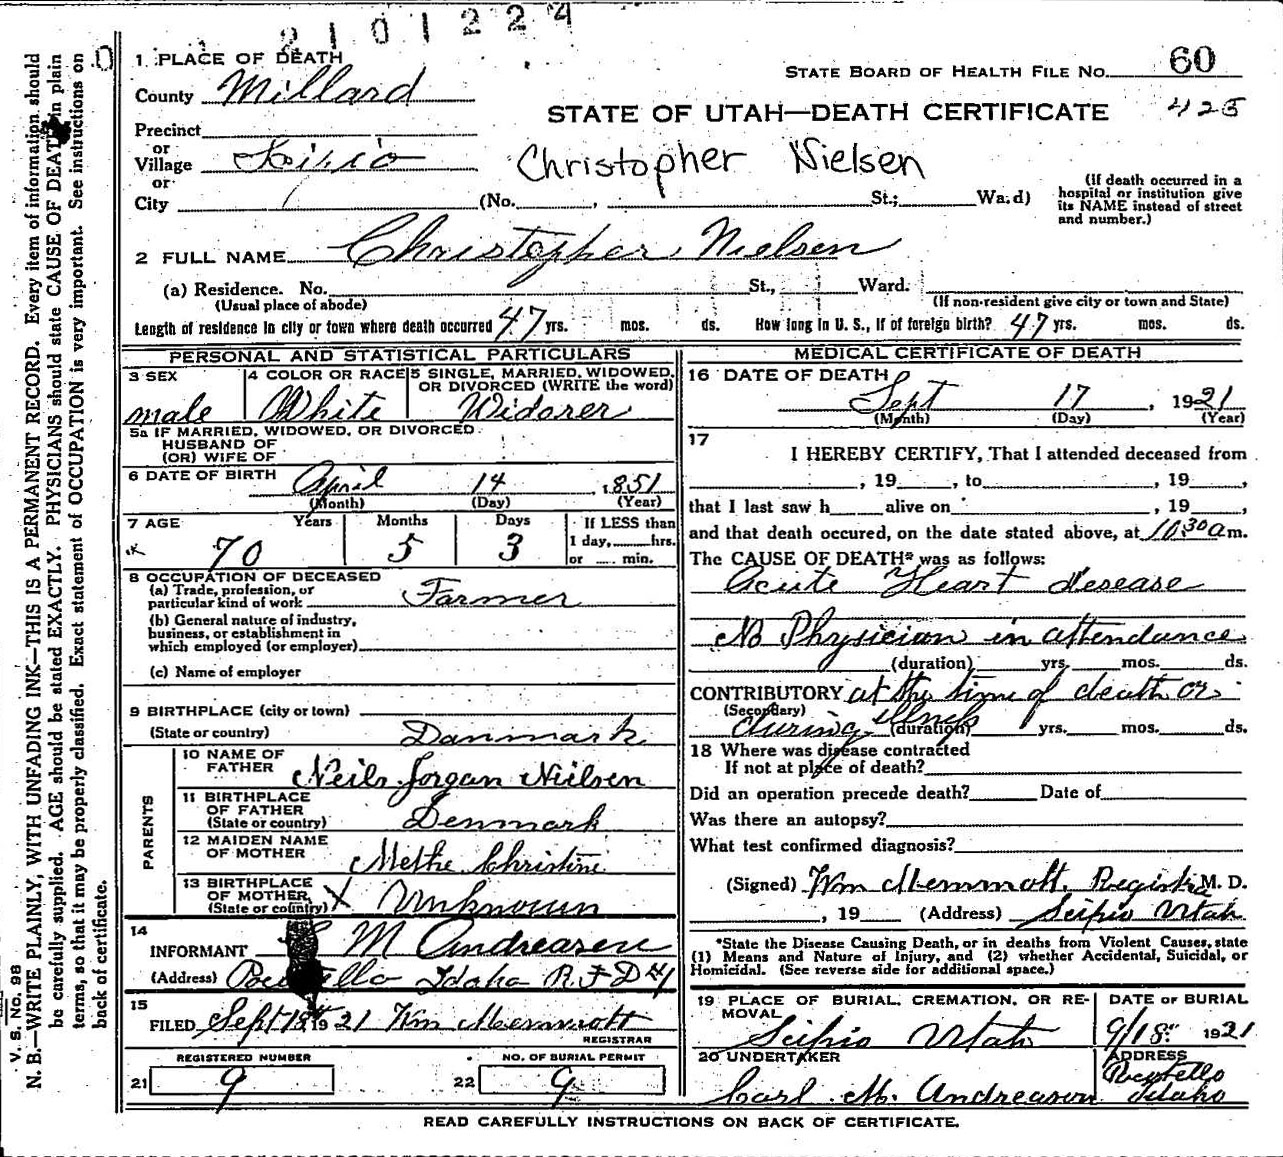 2101224
1 PLACE OF DEATH
STATE BOARD OF HEALTH FILE No. 60
County Millard
STATE OF UTAH—DEATH CERTIFICATE 425
Precinct
or
Village Scipio
Christopher Nielsen
or
City (No. , St.; Ward)
(If death occurred in a
hospital or institution give
its NAME instead of street
and number.)
2 FULL NAME Christopher Nielsen
(a) Residence. No. St., Ward.
(Usual place of abode) (If non-resident give city or town and State)
Length of residence in city or town where death occurred 47 yrs. mos. ds. How long in U. S., if of foreign birth? 47 yrs. mos. ds.
PERSONAL AND STATISTICAL PARTICULARS
3 SEX
male
4 COLOR OR RACE
White
5 SINGLE, MARRIED, WIDOWED,
OR DIVORCED (WRITE the word)
Widorer
5a IF MARRIED, WIDOWED, OR DIVORCED
HUSBAND OF
(OR) WIFE OF
6 DATE OF BIRTH April 14 , 1851
(Month) (Day) (Year)
7 AGE Years Months Days
70 5 3
If LESS than
1 day, hrs.
or min.
8 OCCUPATION OF DECEASED
(a) Trade, profession, or
particular kind of work Farmer
(b) General nature of industry,
business, or establishment in
which employed (or employer)
(c) Name of employer
9 BIRTHPLACE (city or town)
(State or country) Danmark
PARENTS
10 NAME OF
FATHER Neils Jorgan Nielsen
11 BIRTHPLACE
OF FATHER
(State or country) Denmark
12 MAIDEN NAME
OF MOTHER Methe Christine
13 BIRTHPLACE
OF MOTHER
(State or country) X Unknown
14
INFORMANT M Andreasen
(Address) Pocatello Idaho R.F.D 4
15
FILED Sept 18 1921 Wm Memmott
REGISTRAR
REGISTERED NUMBER
21 9
NO. OF BURIAL PERMIT
22 9
MEDICAL CERTIFICATE OF DEATH
16 DATE OF DEATH
Sept 17 , 1921
(Month) (Day) (Year)
17
I HEREBY CERTIFY, That I attended deceased from
, 19 , to , 19 ,
that I last saw h alive on , 19 ,
and that death occured, on the date stated above, at 10:30 a m.
The CAUSE OF DEATH* was as follows:
Acute Heart Desease
No Physician in attendance
(duration) yrs. mos. ds.
CONTRIBUTORY at the time of death or
(Secondary)
during illness (duration) yrs. mos. ds.
18 Where was disease contracted
If not at place of death?
Did an operation precede death? Date of
Was there an autopsy?
What test confirmed diagnosis?
(Signed) Wm Memmott, Registra M. D.
, 19 (Address) Scipio Utah
*State the Disease Causing Death, or in deaths from Violent Causes, state
(1) Means and Nature of Injury, and (2) whether Accidental, Suicidal, or
Homicidal. (See reverse side for additional space.)
19 PLACE OF BURIAL, CREMATION, OR RE-
MOVAL
Scipio Utah
DATE OF BURIAL
9/18 1921
20 UNDERTAKER
Carl M. Andreason
ADDRESS
Pocatello
Idaho
READ CAREFULLY INSTRUCTIONS ON BACK OF CERTIFICATE.
V. S. NO. 98
N. B.—WRITE PLAINLY, WITH UNFADING INK—THIS IS A PERMANENT RECORD. Every item of information should
be carefully supplied. AGE should be stated EXACTLY. PHYSICIANS should state CAUSE OF DEATH in plain
terms, so that it may be properly classified. Exact statement of OCCUPATION is very important. See instructions on
back of certificate.